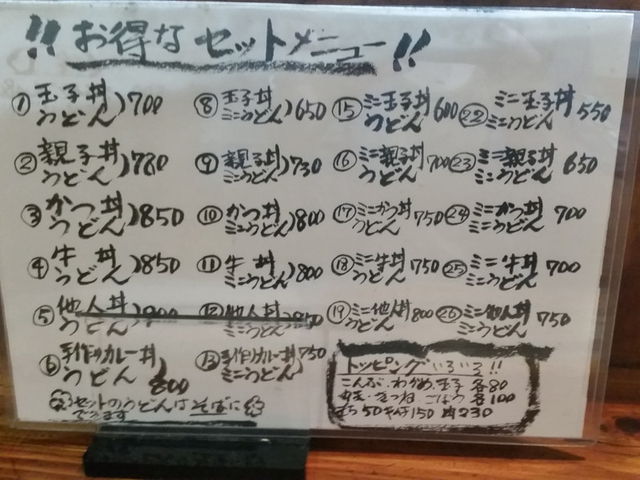 !! お得なセットメニュー !!
① 玉子丼
うどん )700
② 親子丼
うどん )780
③ かつ丼
うどん )850
④ 牛丼
うどん )850
⑤ 他人丼
うどん )900
⑥ 手作りカレー丼
うどん 800
⑧ 玉子丼
ミニうどん )650
⑨ 親子丼
ミニうどん )730
⑩ かつ丼
ミニうどん )800
⑪ 牛丼
ミニうどん )800
⑫ 他人丼
ミニうどん
⑬ 手作りカレー丼
ミニうどん 750
⑮ ミニ玉子丼
うどん 600
⑯ ミニ親子丼
うどん 700
⑰ ミニかつ丼
うどん 750
⑱ ミニ牛丼
うどん 750
⑲ ミニ他人丼
うどん 800
㉒ ミニ玉子丼
ミニうどん 550
㉓ ミニ親子丼
ミニうどん 650
㉔ ミニかつ丼
ミニうどん 700
㉕ ミニ牛丼
ミニうどん 700
㉖ ミニ他人丼
ミニうどん 750
セットのうどんはそばに
できます
トッピングいろいろ!!
こんぶ・わかめ・玉子 各80
きつね ごぼう 各100
50 150 肉230